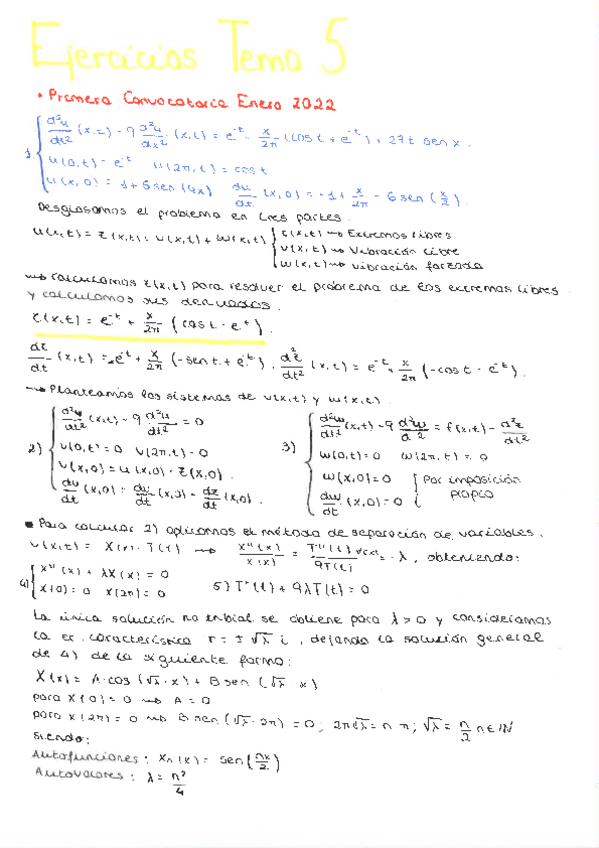 Ejercicios Tema 5
• Primera Convocatoria Enero 2022
1. d²u/dt² (x,t) - 9 d²u/dx² (x,t) = e^-t - x/2π (cos t + e^-t) + 27t sen x.
u(0,t) = e^-t u(2π,t) = cos t
u(x,0) = 1 + 5 sen(4x) du/dt (x,0) = -1 + x/2π - 6 sen(x/2).
Desglosamos el problema en tres partes.
u(x,t) = z(x,t) + v(x,t) + w(x,t) z(x,t) → Extremos libres
v(x,t) → Vibración libre
w(x,t) → vibración forzada
→ Calculamos z(x,t) para resolver el problema de los extremos libres
y calculamos sus derivadas.
z(x,t) = e^-t + x/2π (cos t - e^-t).
dz/dt (x,t) = -e^-t + x/2π (-sen t + e^-t). d²z/dt² (x,t) = e^-t + x/2π (-cos t - e^-t).
→ Planteamos los sistemas de v(x,t) y w(x,t)
2) d²v/dt² (x,t) - 9 d²v/dt² = 0
v(0,t) = 0 v(2π,t) = 0
v(x,0) = u(x,0) - z(x,0)
dv/dt (x,0) = du/dt (x,0) - dz/dt (x,0).
3) d²w/dt² (x,t) - 9 d²w/d² = f(x,t) - d²z/dt²
w(0,t) = 0 w(2π,t) = 0
w(x,0) = 0
dw/dt (x,0) = 0 Por imposición propia
• Para calcular 2) aplicamos el método de separación de variables.
v(x,t) = X(x) · T(t) → X''(x)/X(x) = T''(t)/9T(t) = - λ, obteniendo:
4) X''(x) + λX(x) = 0
X(0) = 0 X(2π) = 0 5) T''(t) + 9λT(t) = 0
La única solución no trivial se obtiene para λ > 0 y consideramos
la ec. característica r = ± √λ i, dejando la solución general
de 4) de la siguiente forma:
X(x) = A·cos(√λ·x) + B sen(√λ x)
para X(0) = 0 → A = 0
para X(2π) = 0 → B sen(√λ·2π) = 0; 2π√λ = nπ; √λ = n/2 n∈ℕ
siendo:
Autofunciones: Xn(x) = sen(nx/2)
Autovalores: λ = n²/4